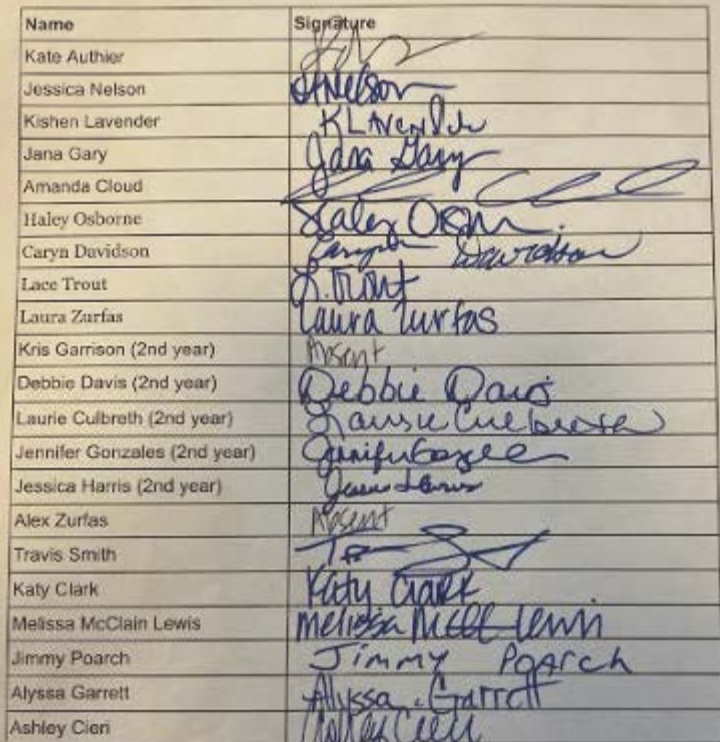 Name Signature
Kate Authier
Jessica Nelson JNelson
Kishen Lavender KLAvender
Jana Gary Jana Gary
Amanda Cloud
Haley Osborne Haley
Caryn Davidson Caryn Davidson
Lace Trout L. Trout
Laura Zurfas Laura Zurfas
Kris Garrison (2nd year) Absent
Debbie Davis (2nd year) Debbie Davis
Laurie Culbreth (2nd year) Laurie Culbreth
Jennifer Gonzales (2nd year) Jennifer
Jessica Harris (2nd year)
Alex Zurfas Absent
Travis Smith
Katy Clark Katy Clark
Melissa McClain Lewis Melissa Lewis
Jimmy Poarch Jimmy Poarch
Alyssa Garrett Alyssa Garrett
Ashley Cieri